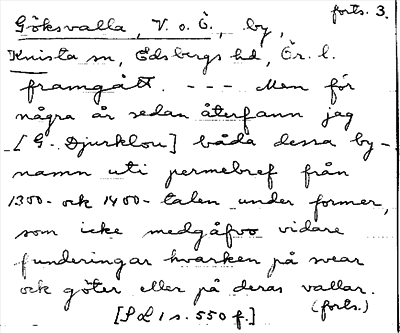 forts. 3.
Göksvalla, V. o. Ö., by,
Knista sn, Edsbergs hd, Ör. l.
framgått. --- Men för
några år sedan återfann jag
[G. Djurklou] båda dessa by-
namn uti permebref från
1300- och 1400-talen under former,
som icke medgåfvo vidare
funderingar hvarken på svear
och göter eller på deras vallar.
[SL 1 s. 550 f.] (forts.)